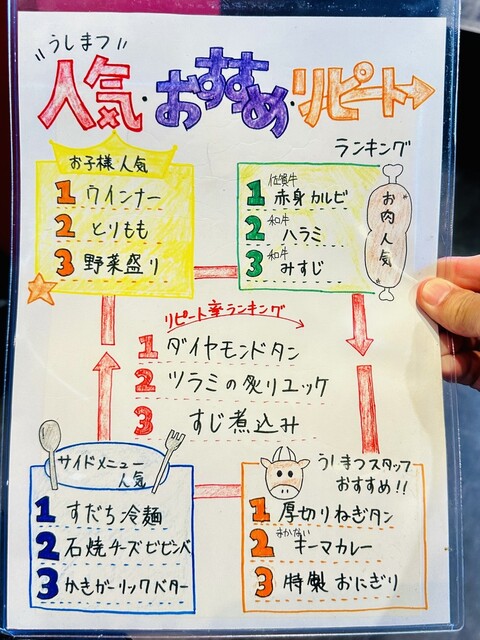 うしまつ
人気・おすすめ・リピート
ランキング
お子様人気
1 ウインナー
2 とりもも
3 野菜盛り
お肉人気
佐賀牛
1 赤身カルビ
和牛
2 ハラミ
和牛
3 みすじ
リピート率ランキング
1 ダイヤモンドタン
2 ツラミの炙りユッケ
3 すじ煮込み
サイドメニュー
人気
1 すだち冷麺
2 石焼チーズビビンバ
3 かきガーリックバター
うしまつスタッフ
おすすめ!!
1 厚切りねぎタン
まかない
2 キーマカレー
3 特製おにぎり